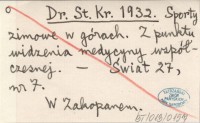 Dr. St. Kr. 1932. Sporty
zimowe w górach. Z punktu
widzenia medycyny współ-
czesnej. — Świat 27,
nr 7.
W Zakopanem.